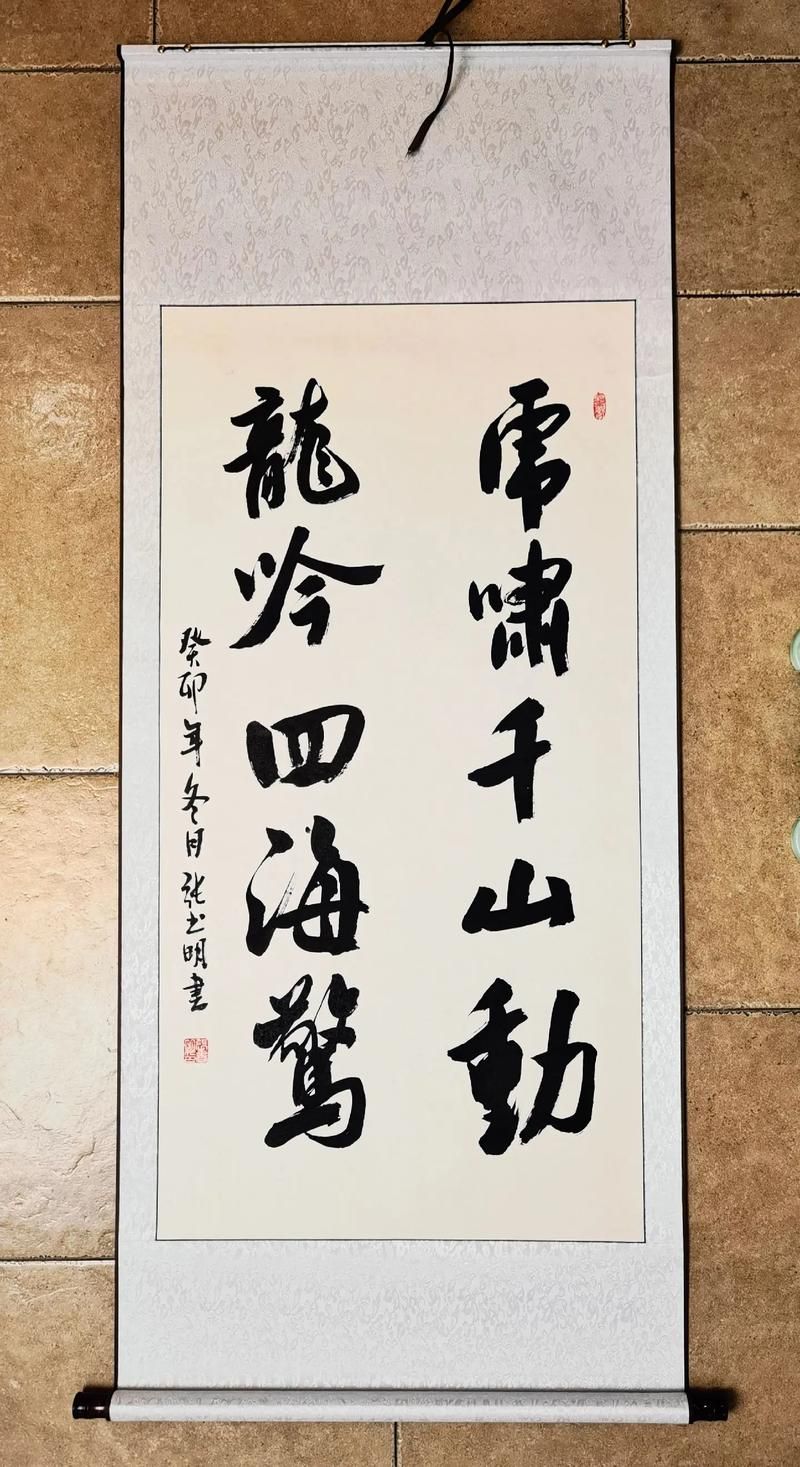 虎嘯千山動
龍吟四海驚
癸卯年冬月張書明書